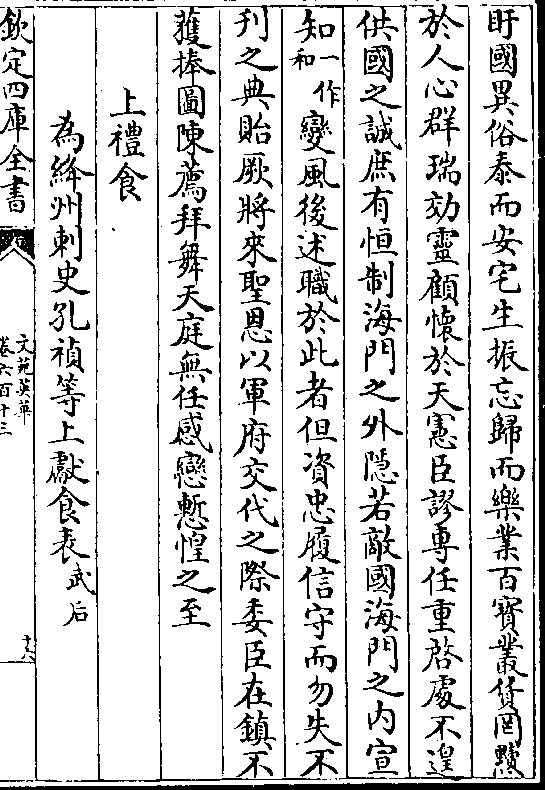 盱國異俗泰而安宅生振忘歸而樂業百寶叢貨罔黷
於人心群瑞効靈顧懷於天憲臣謬專任重啓處不遑
供國之誠庶有恒制海門之外隱若敵國海門之內宣
知一作和變風後述職於此者但資忠履信守而勿失不
刋之典貽厥將來聖恩以軍府交代之際委臣在鎮不
獲捧圖陳薦拜舞天庭無任感戀慙惶之至
上禮食
為絳州刺史孔禎等上獻食表武后
欽定四庫全書
文苑英華
卷六百十三
十六